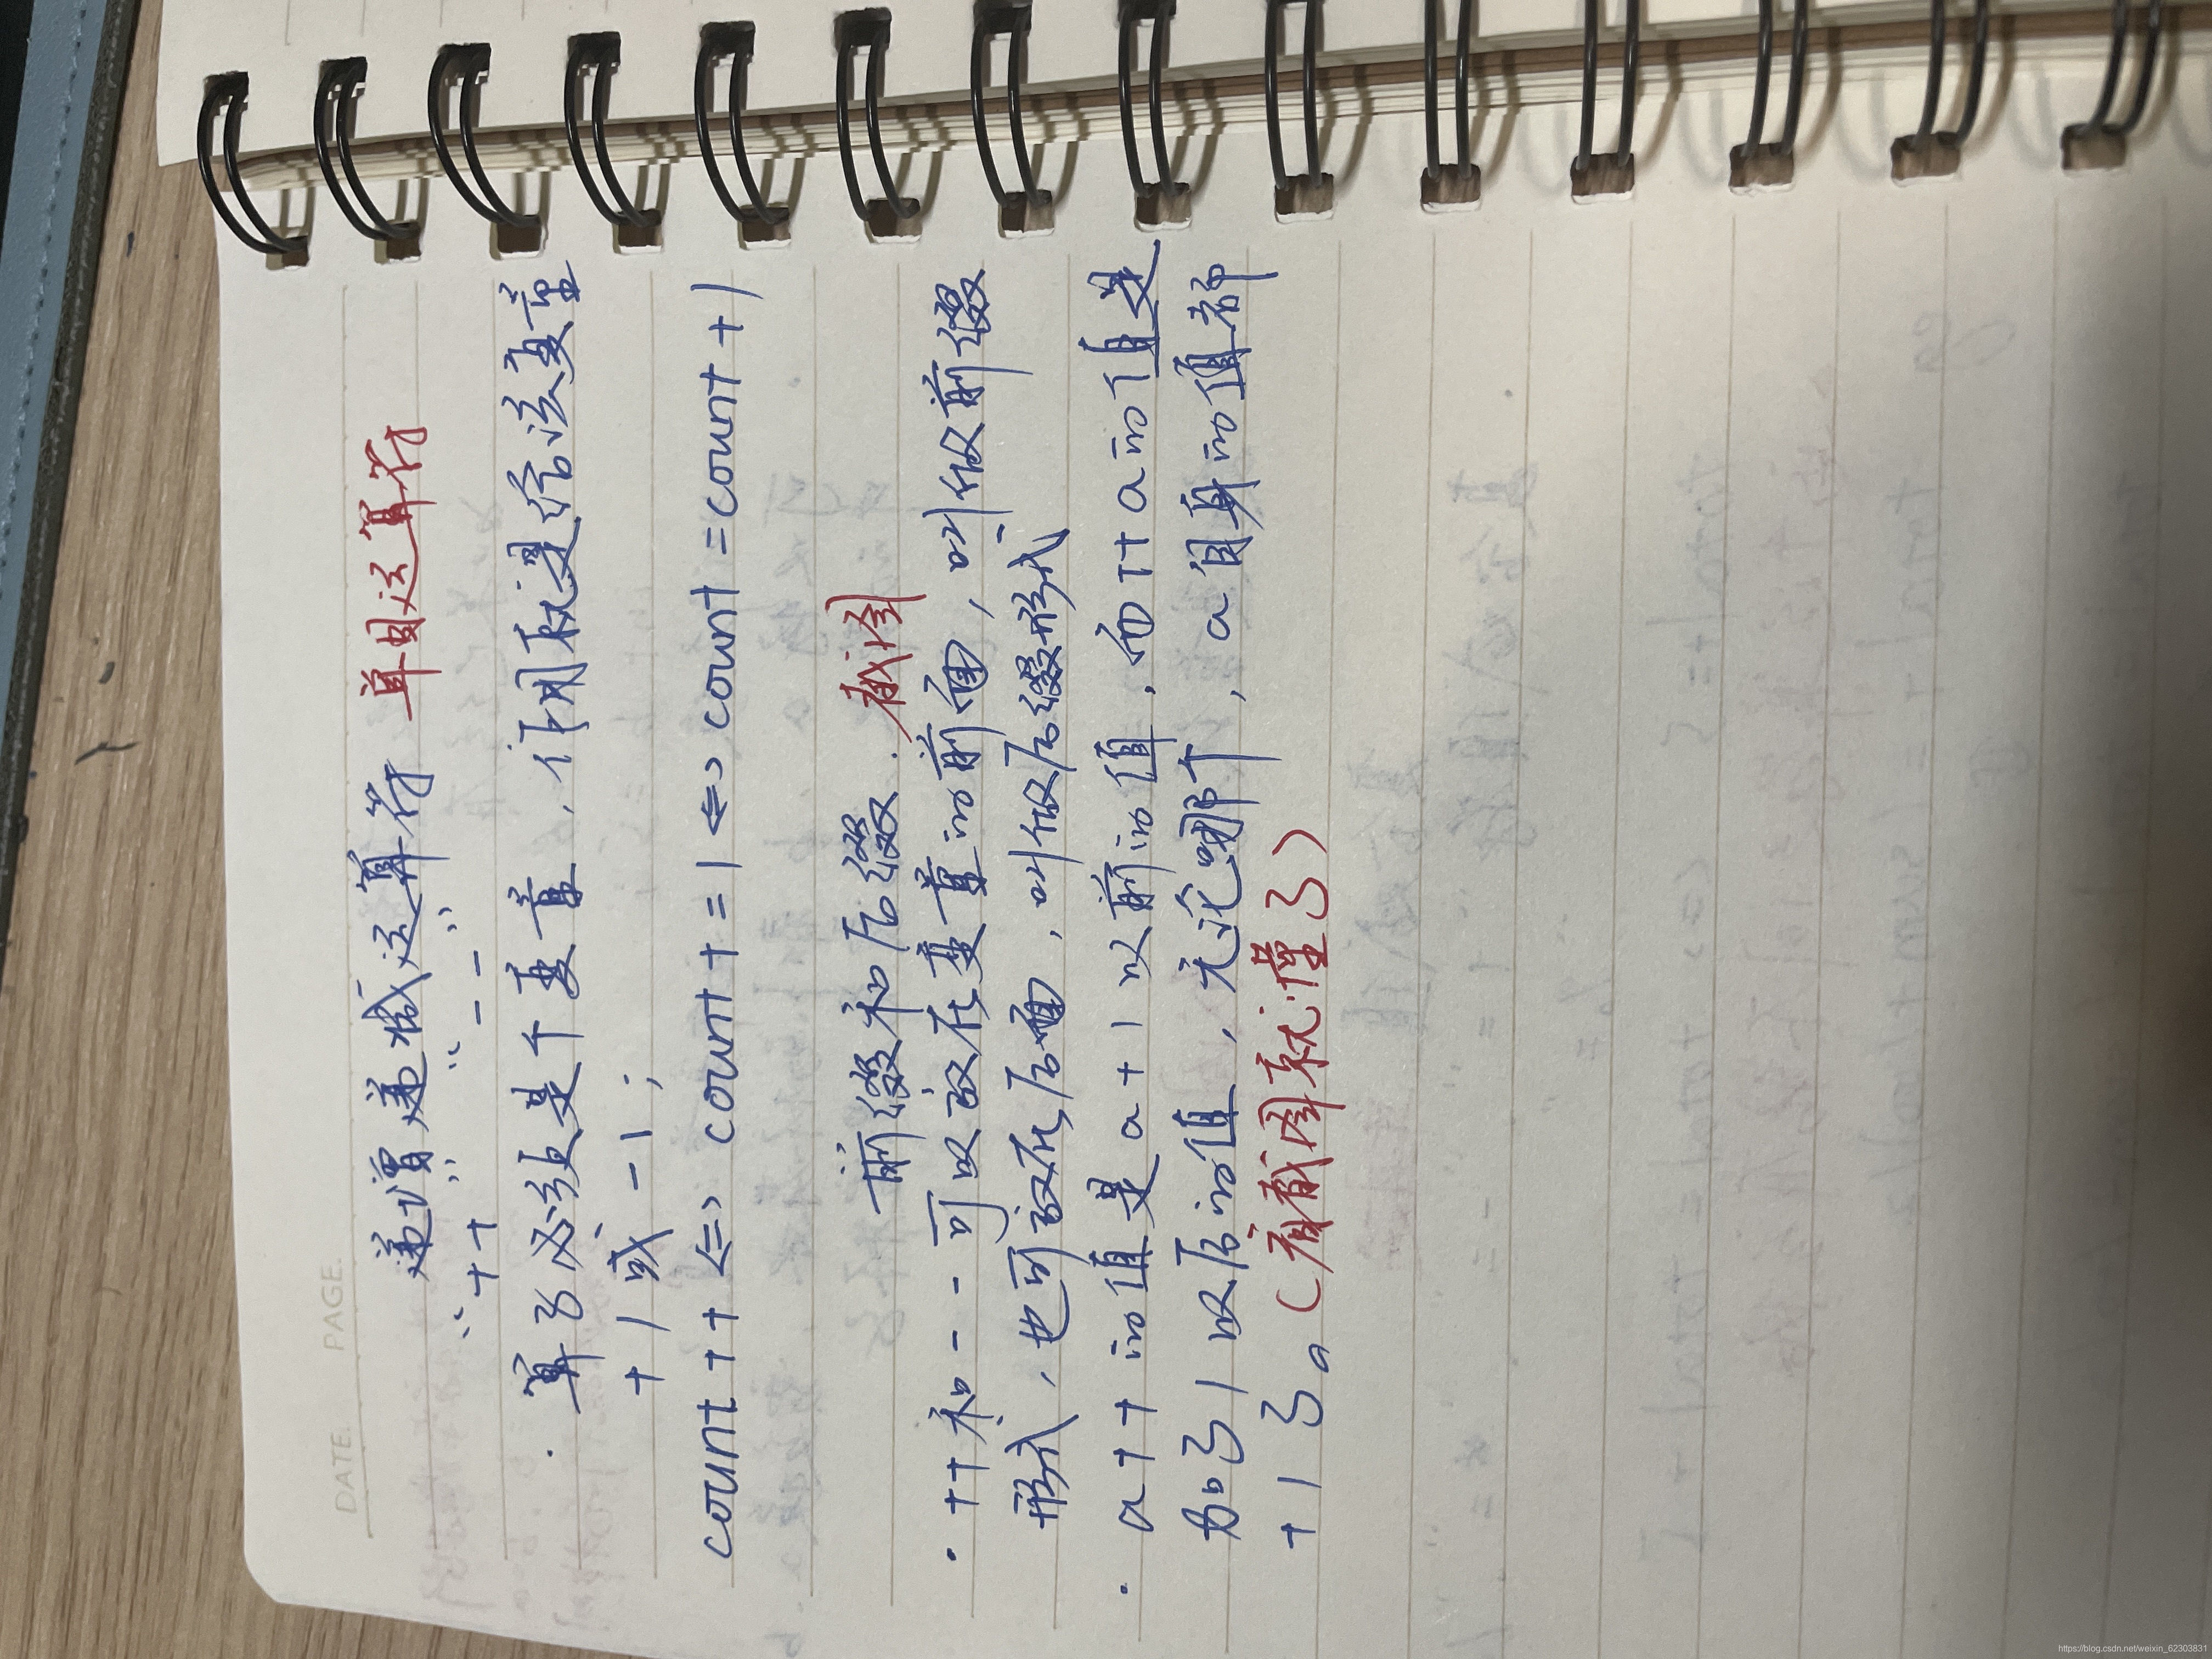 DATE. PAGE.
递增递减运算符 单目运算符
“++” “--”
· 算子必须是个变量，作用就是给该变量
+1或-1;
count++ <=> count+=1 <=> count=count+1
前缀和后缀. 截图
· ++和--可以放在变量的前面，叫做前缀
形式，也可放在后面，叫做后缀形式
· a++的值是a+1以前的值，而++a的值是
加了1以后的值，无论哪个，a自身的值都
+1了。（看截图就懂了）
https://blog.csdn.net/weixin_62303831